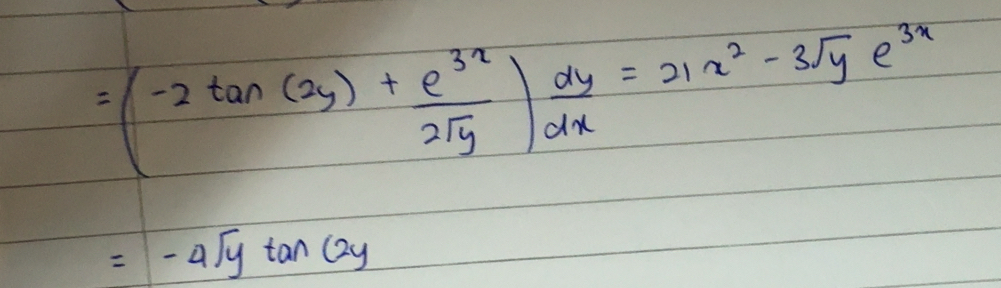 = (-2 tan (2y) + e^{3x}/2√y) dy/dx = 21x² - 3√y e^{3x}
= -4√y tan (2y